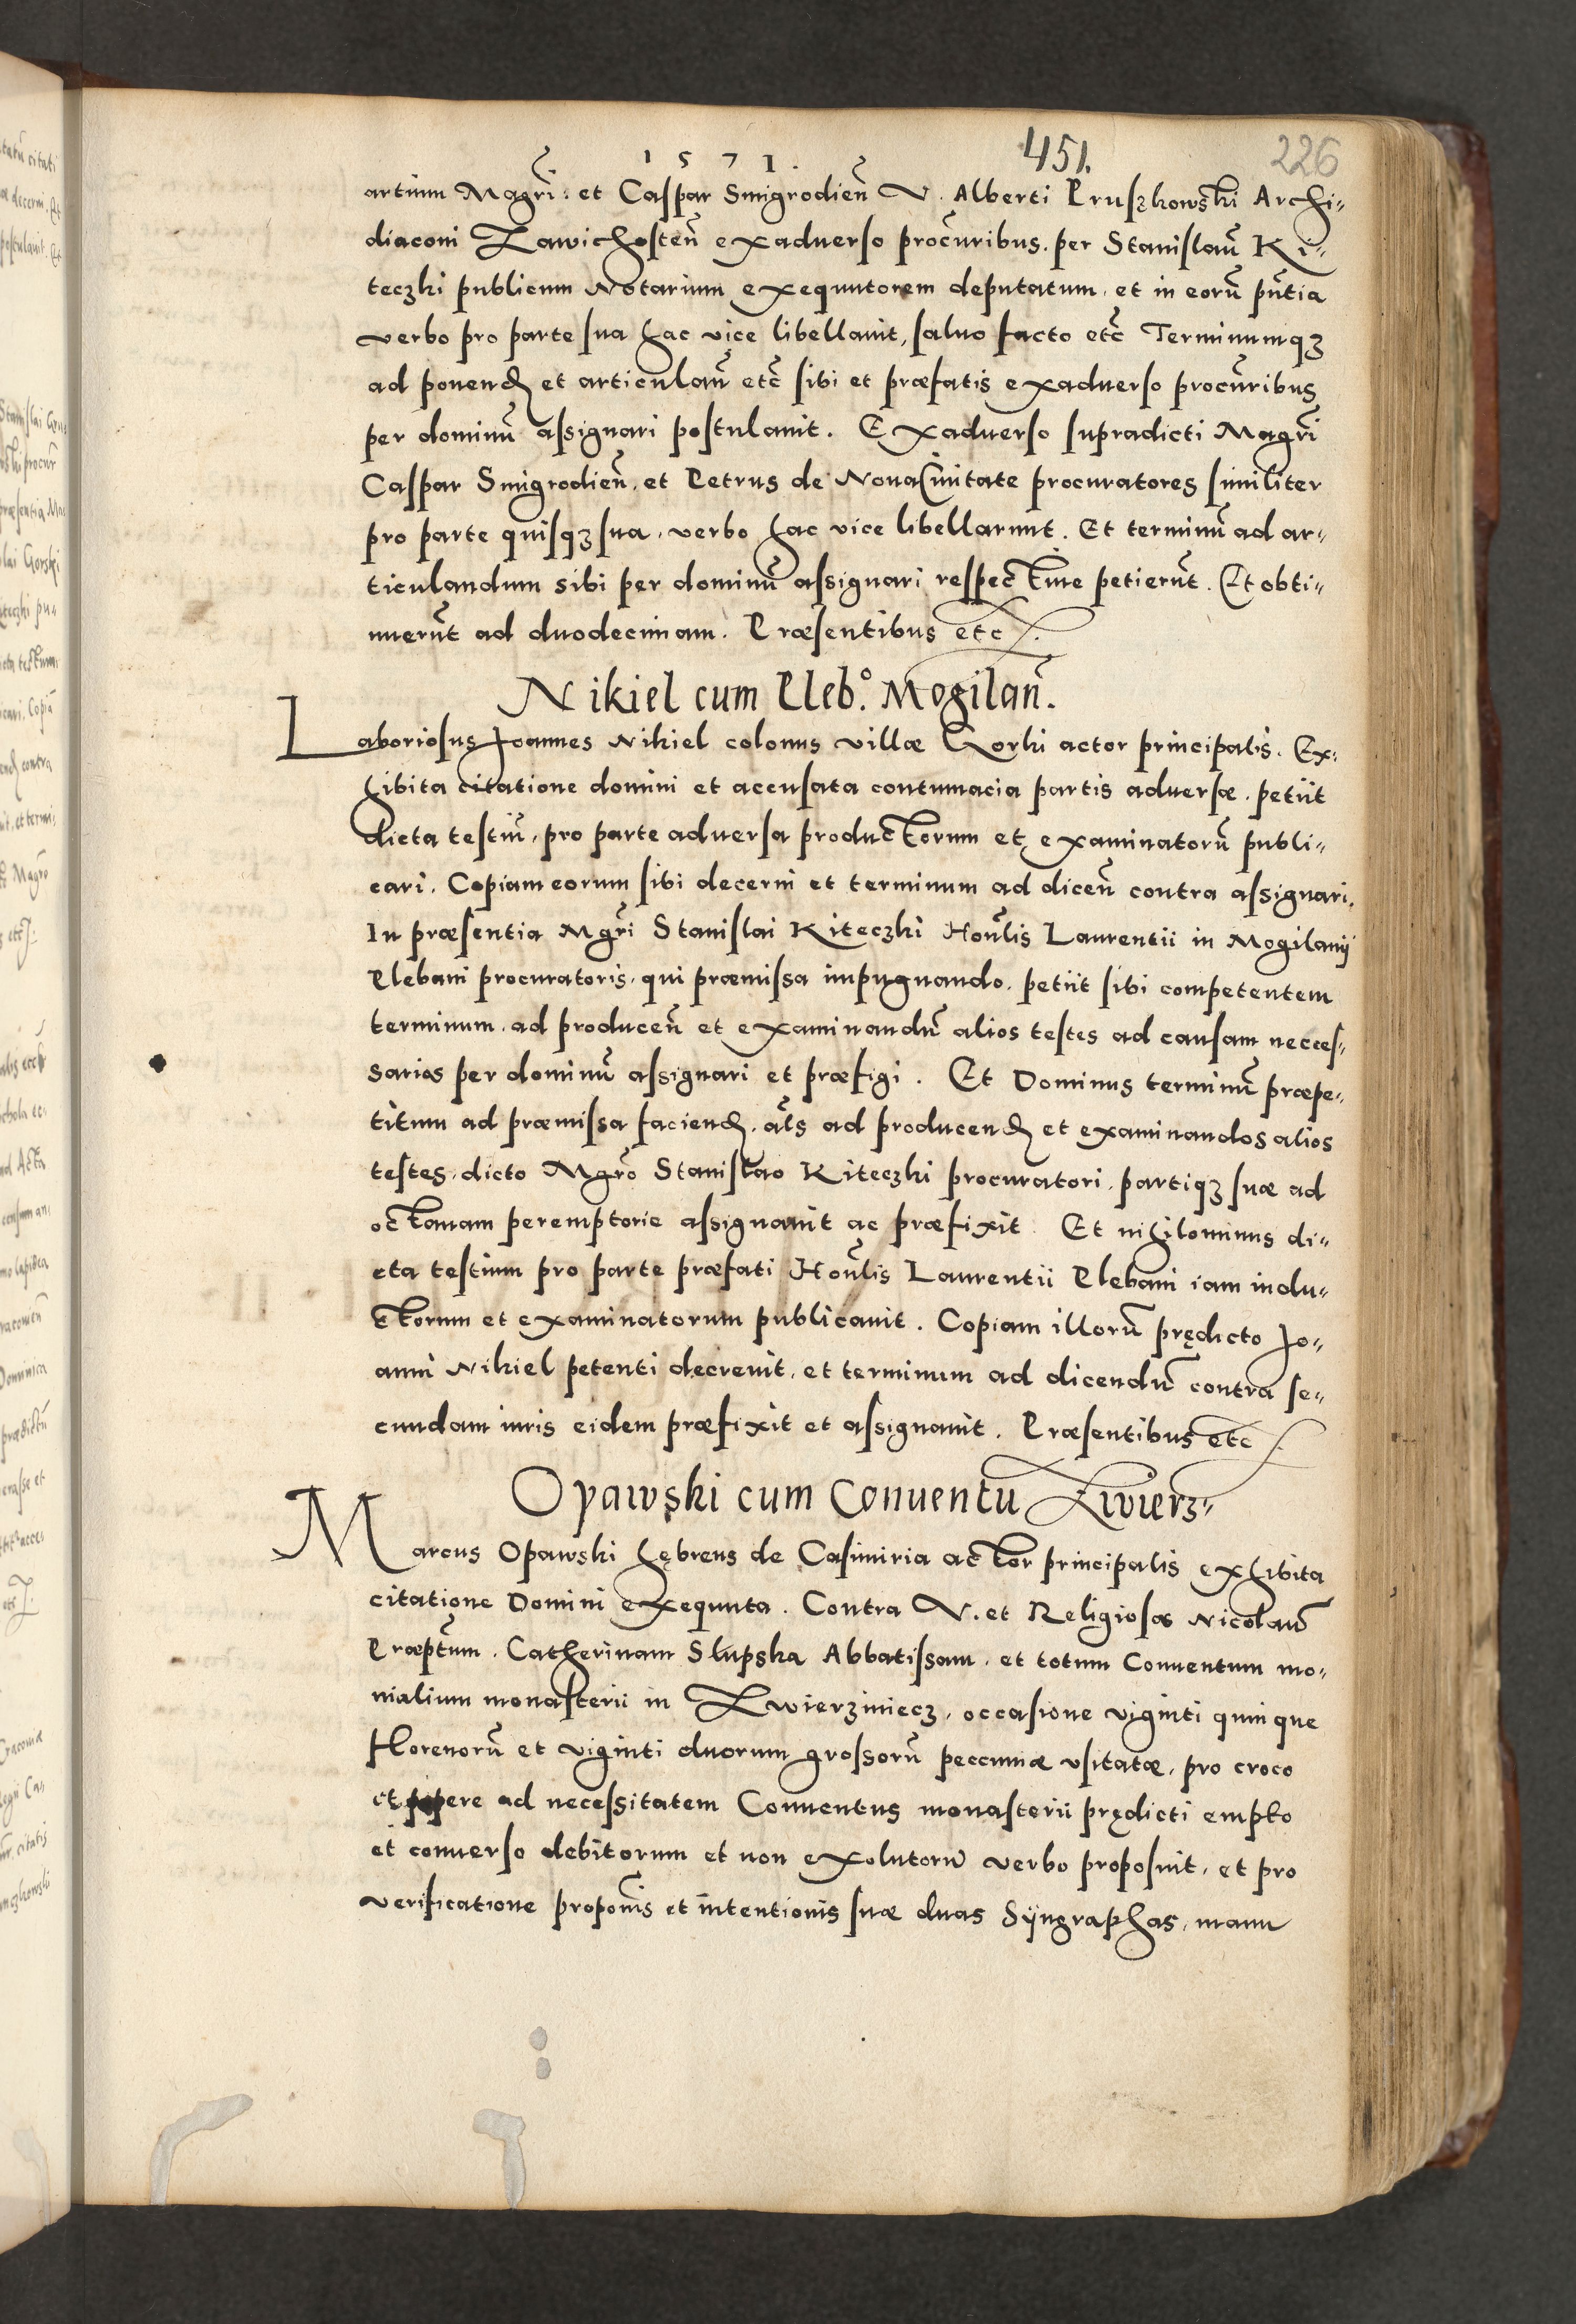 1571.
451.
226
artium Magri. et Caspar Smigrodien̄ V. Alberti Pruszkowski Archi„
diaconi Zawichosten̄ exaduerso procuribus. per Stanislaū Ki„
teczki publicum Notarium exequutorem deputatum. et in eorū pn̄tia
verbo pro parte sua hac vice libellauit, saluo facto etc̄ Terminumqꝫ
ad ponend et articulan̄ etc̄ sibi et præfatis exaduerso procuribus
per dominū assignari postulauit. Exaduerso supradicti Magri
Caspar Smigrodien̄. et Petrus de Nouaciuitate procuratores similiter
pro parte quisqꝫ sua. verbo hac vice libellarunt. Et terminū ad ar„
ticulandum sibi per dominū assignari respectiue petierūt. Et obti„
nuerūt ad duodecimam. Præsentibus etc
Nikiel cum Pleb.º Mogilan̄.
Laboriosus Joannes Nikiel colonus villæ Gorki actor principalis. Ex„
hibita citatione domini et accusata contumacia partis aduersæ. petiit
dicta testiū, pro parte aduersa productorum et examinatorū publi„
cari. Copiam eorum sibi decerni et terminum ad dicen̄ contra assignari.
In præsentia Mgri Stanislai Kiteczki Honlis Laurentii in Mogilanij
Plebani procuratoris. qui præmissa impugnando. petiit sibi competentem
terminum. ad producen̄ et examinandū alios testes ad causam necces„
sarios per dominū assignari et præfigi. Et Dominus terminū præpe„
titum ad præmissa faciend. al̄s ad producend et examinandos alios
testes. dicto Mgro Stanislao Kiteczki procuratori. partiqꝫ suæ ad
octauam peremptorie assignauit ac præfixit Et nihilominus di„
cta testium pro parte præfati Honlis Laurentii Plebani iam indu„
ctorum et examinatorum publicauit. Copiam illorū prędicto Jo„
anni Nikiel petenti decreuit. et terminum ad dicendū contra se„
cundam iuris eidem præfixit et assignauit. Præsentibus etc
Opawski cum Conuentu Zwierz„
Marcus Opawski hębreus de Casimiria actor principalis exhibita
citatione Domini exequuta. Contra V. et Religiosos Nicolaū
Præptum. Catherinam Slupska Abbatissam. et totum Conuentum mo„
nialium monasterii in Zwierziniecz, occasione viginti quinque
florenorū et viginti duorum grossorū peccuniæ vsitatæ, pro croco
et pipere ad necessitatem Conuentus monasterii prędicti empto
et conuerso debitorum et non exolutorū verbo proposuit, et pro
verificatione propōnis et intentionis suæ duas Syngraphas, manu